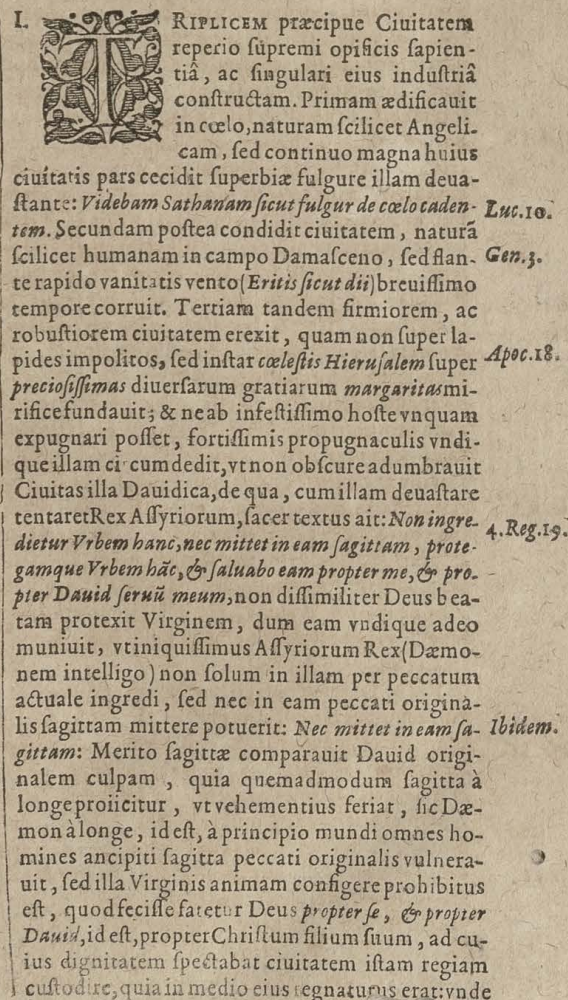 I. TRIPLICEM præcipue Ciuitatem
reperio ſupremi opificis ſapien-
tiâ, ac ſingulari eius induſtriâ
conſtructam. Primam ædificauit
in cœlo, naturam ſcilicet Angeli-
cam, ſed continuo magna huius
ciuitatis pars cecidit ſuperbiæ fulgure illam deua-
ſtante: Videbam Sathanam ſicut fulgur de cœlo caden- Luc.10.
tem. Secundam poſtea condidit ciuitatem, naturã
ſcilicet humanam in campo Damaſceno, ſed flan- Gen.3.
te rapido vanitatis vento (Eritis ſicut dii) breuiſſimo
tempore corruit. Tertiam tandem firmiorem, ac
robuſtiorem ciuitatem erexit, quam non ſuper la-
pides impolitos, ſed inſtar cœleſtis Hieruſalem ſuper Apoc.18.
precioſiſſimas diuerſarum gratiarum margaritas mi-
rifice fundauit; & ne ab infeſtiſſimo hoſte vnquam
expugnari poſſet, fortiſſimis propugnaculis vndi-
que illam cicumdedit, vt non obſcure adumbrauit
Ciuitas illa Dauidica, de qua, cum illam deuaſtare
tentaret Rex Aſſyriorum, ſacer textus ait: Non ingre- 4.Reg.19.
dietur Vrbem hanc, nec mittet in eam ſagittam, prote-
gamque Vrbem hãc, & ſaluabo eam propter me, & pro-
pter Dauid ſeruũ meum, non diſſimiliter Deus bea-
tam protexit Virginem, dum eam vndique adeo
muniuit, vt iniquiſſimus Aſſyriorum Rex (Dæmo-
nem intelligo) non ſolum in illam per peccatum
actuale ingredi, ſed nec in eam peccati origina-
lis ſagittam mittere potuerit: Nec mittet in eam ſa- Ibidem.
gittam: Merito ſagittæ comparauit Dauid origi-
nalem culpam, quia quemadmodum ſagitta à
longe proiicitur, vt vehementius feriat, ſic Dæ-
mon à longe, id eſt, à principio mundi omnes ho-
mines ancipiti ſagitta peccati originalis vulnera-
uit, ſed illa Virginis animam configere prohibitus
eſt, quod feciſſe fatetur Deus propter ſe, & propter
Dauid, id eſt, propter Chriſtum filium ſuum, ad cu-
ius dignitatem ſpectabat ciuitatem iſtam regiam
cuſtodire, quia in medio eius regnaturus erat: vnde